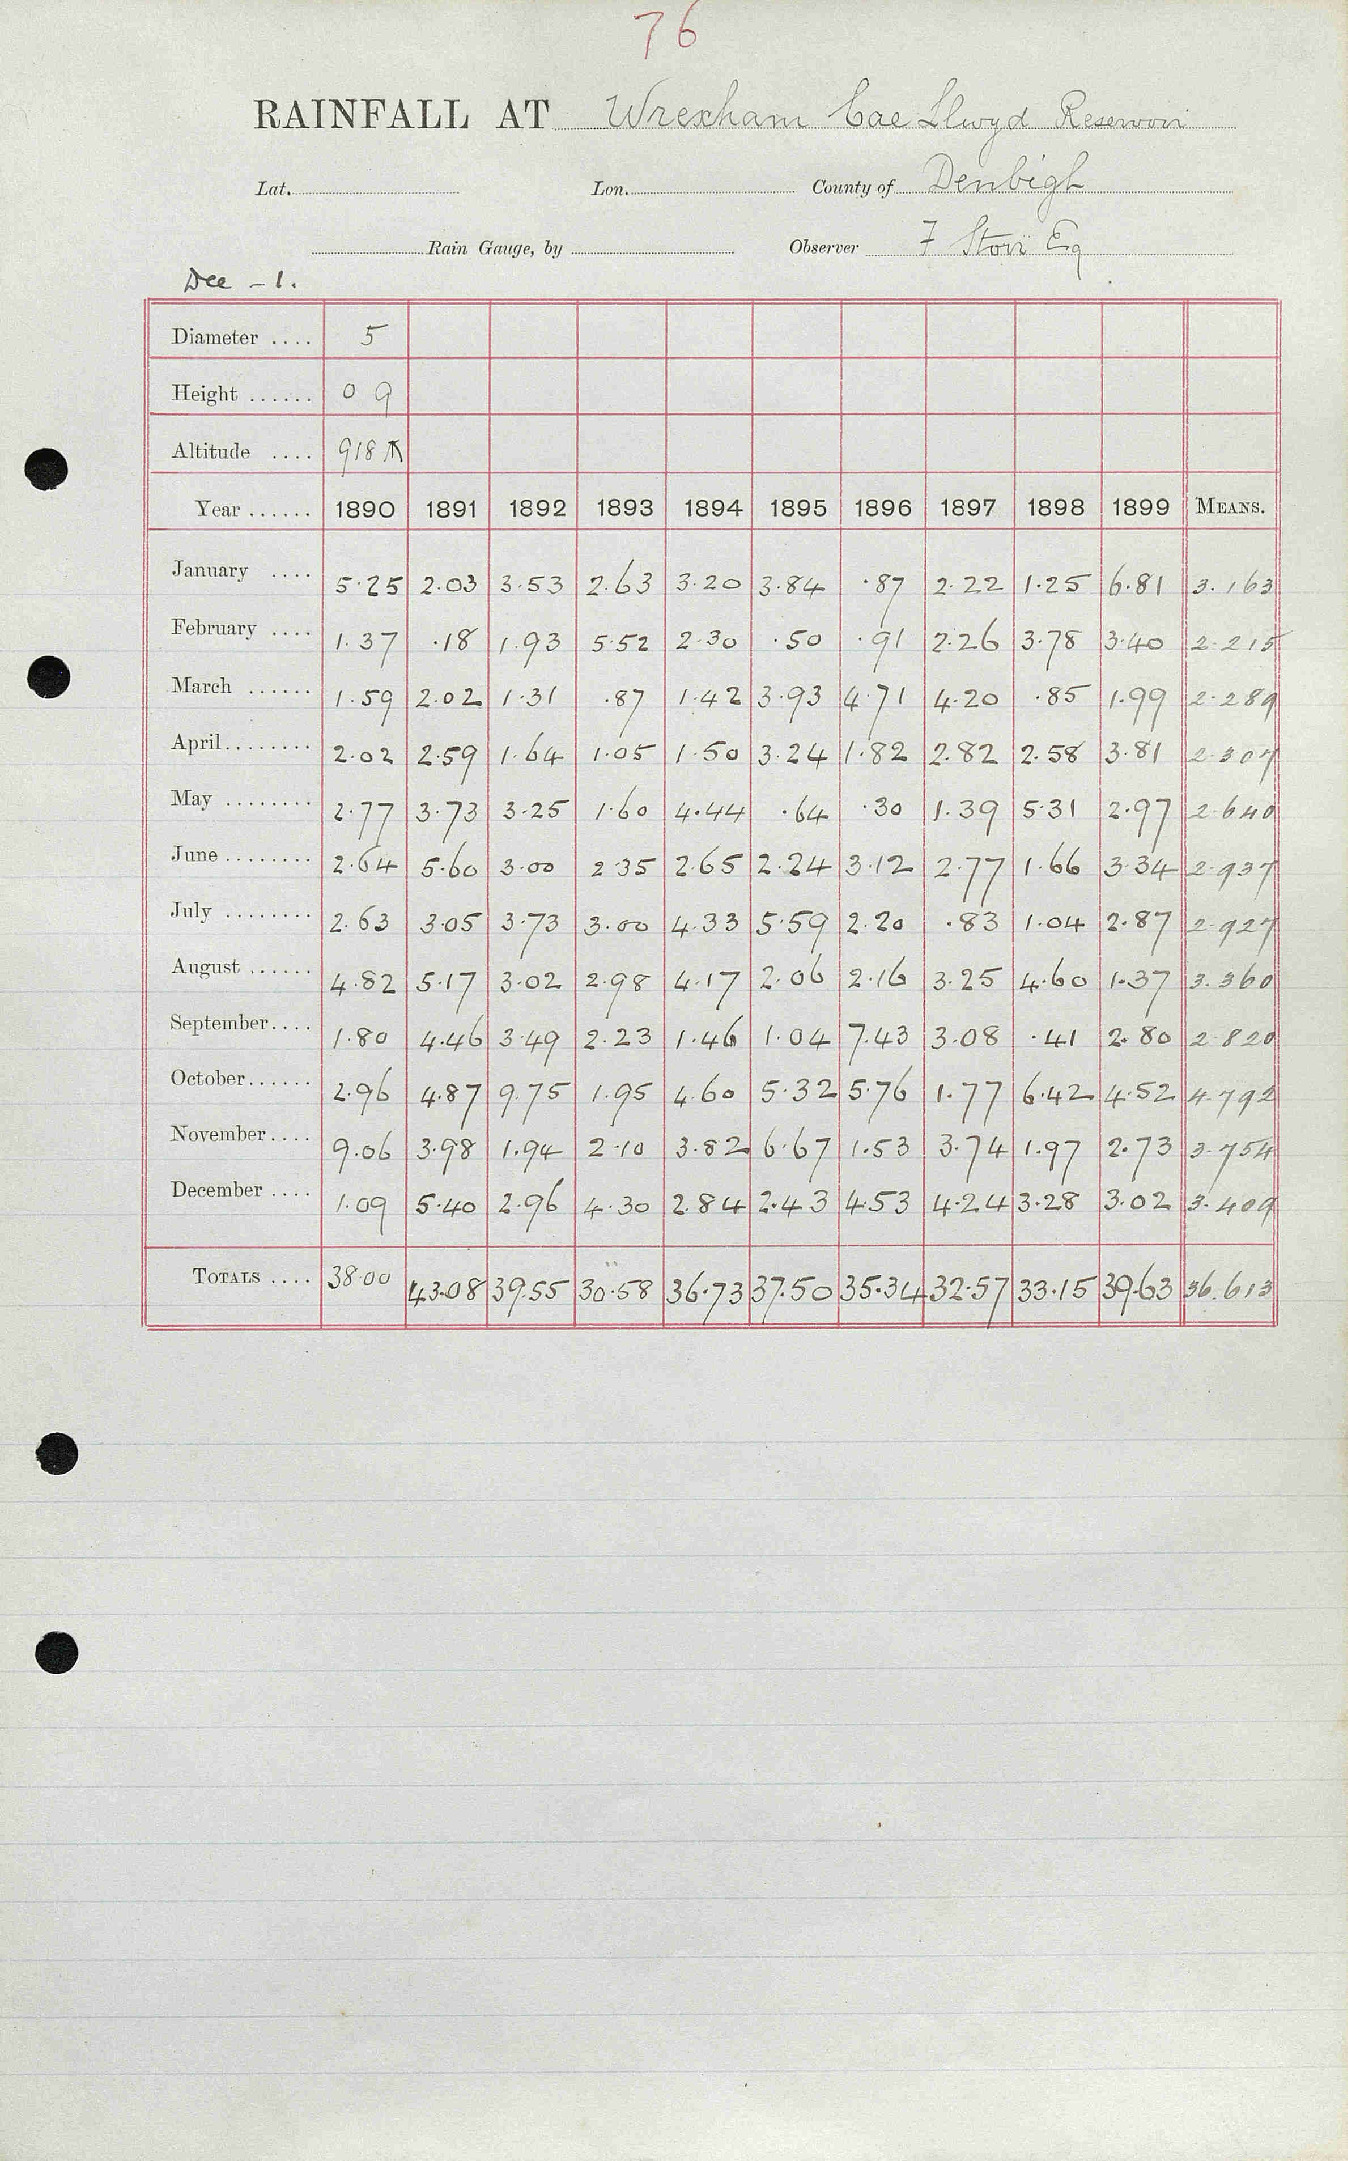 76
RAINFALL AT Wrexham Cae Llwyd Reservoir
Lat. Lon. County of Denbigh
Rain Gauge, by Observer F Storr Esq
Dee - 1.
Diameter .... 5
Height ...... 0 9
Altitude .... 918
Year ...... 1890 1891 1892 1893 1894 1895 1896 1897 1898 1899 MEANS.
January .... 5.25 2.03 3.53 2.63 3.20 3.84 .87 2.22 1.25 6.81 3.163
February .... 1.37 .18 1.93 5.52 2.30 .50 .91 2.26 3.78 3.40 2.215
March ...... 1.59 2.02 1.31 .87 1.42 3.93 4.71 4.20 .85 1.99 2.289
April ........ 2.02 2.59 1.64 1.05 1.50 3.24 1.82 2.82 2.58 3.81 2.307
May ........ 2.77 3.73 3.25 1.60 4.44 .64 .30 1.39 5.31 2.97 2.640
June ........ 2.64 5.60 3.00 2.35 2.65 2.24 3.12 2.77 1.66 3.34 2.937
July ........ 2.63 3.05 3.73 3.00 4.33 5.59 2.20 .83 1.04 2.87 2.927
August ...... 4.82 5.17 3.02 2.98 4.17 2.06 2.16 3.25 4.60 1.37 3.360
September .... 1.80 4.46 3.49 2.23 1.46 1.04 7.43 3.08 .41 2.80 2.820
October ...... 2.96 4.87 9.75 1.95 4.60 5.32 5.76 1.77 6.42 4.52 4.792
November .... 9.06 3.98 1.94 2.10 3.82 6.67 1.53 3.74 1.97 2.73 3.754
December .... 1.09 5.40 2.96 4.30 2.84 2.43 4.53 4.24 3.28 3.02 3.409
TOTALS .... 38.00 43.08 39.55 30.58 36.73 37.50 35.34 32.57 33.15 39.63 36.613